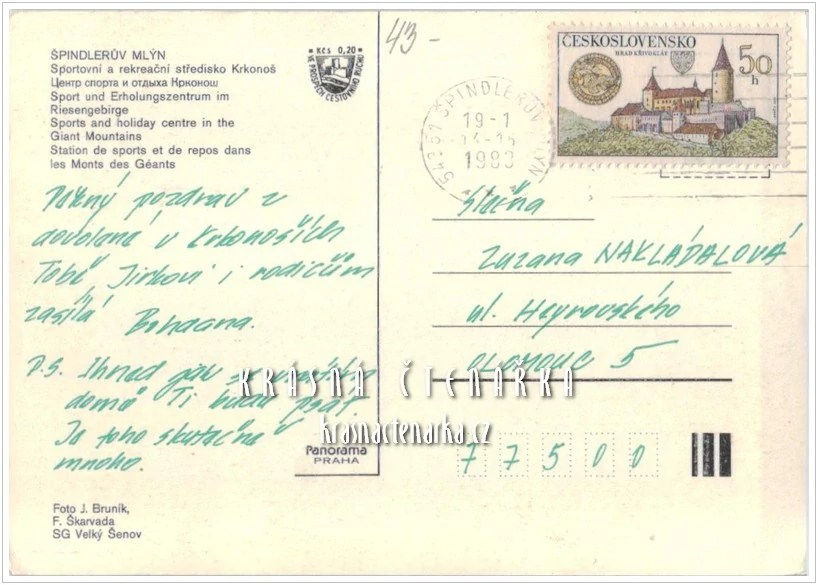 ŠPINDLERŮV MLÝN
Sportovní a rekreační středisko Krkonoš
Центр спорта и отдыха Крконош
Sport und Erholungszentrum im
Riesengebirge
Sports and holiday centre in the
Giant Mountains
Station de sports et de repos dans
les Monts des Géants
Kčs 0,20
VE PROSPĚCH CESTOVNÍHO RUCHU
43-
ČESKOSLOVENSKO
HRAD KŘIVOKLÁT
50
h
543 51 ŠPINDLERŮV MLÝN
19-1
14-15
1983
pozdrav z
dovolené v Krkonoších
Tobě, Jirkovi i rodičům
zasílá
P.S. Ihned jak se
doma Ti budu psát.
Je toho skutečně
mnoho.
Slečna
Zuzana NAKLÁDALOVÁ
ul. Heyrovského
OLOMOUC 5
77500
KRÁSNÁ ČTENÁŘKA
krasnactenarka.cz
Panorama
PRAHA
Foto J. Bruník,
F. Škarvada
SG Velký Šenov